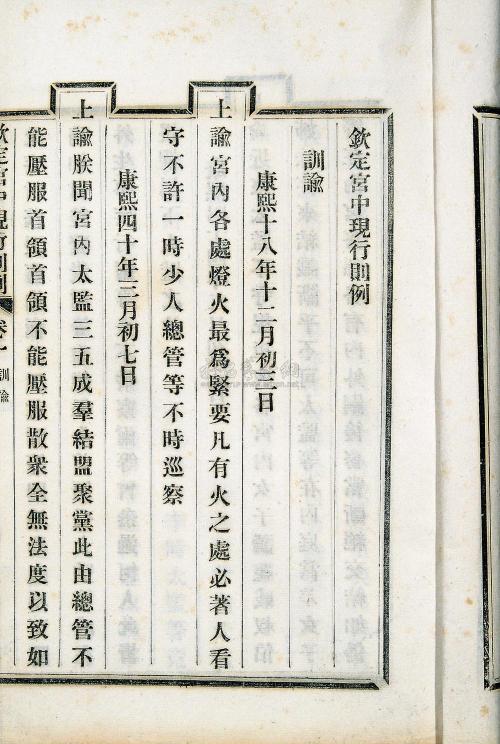 欽定宮中現行則例
訓諭
康熙十八年十二月初三日
上諭宮內各處燈火最爲緊要凡有火之處必著人看
守不許一時少人總管等不時巡察
康熙四十年三月初七日
上諭朕聞宮內太監三五成羣結盟聚黨此由總管不
能壓服首領首領不能壓服散衆全無法度以致如
欽定宮中現行則例 卷一 訓諭